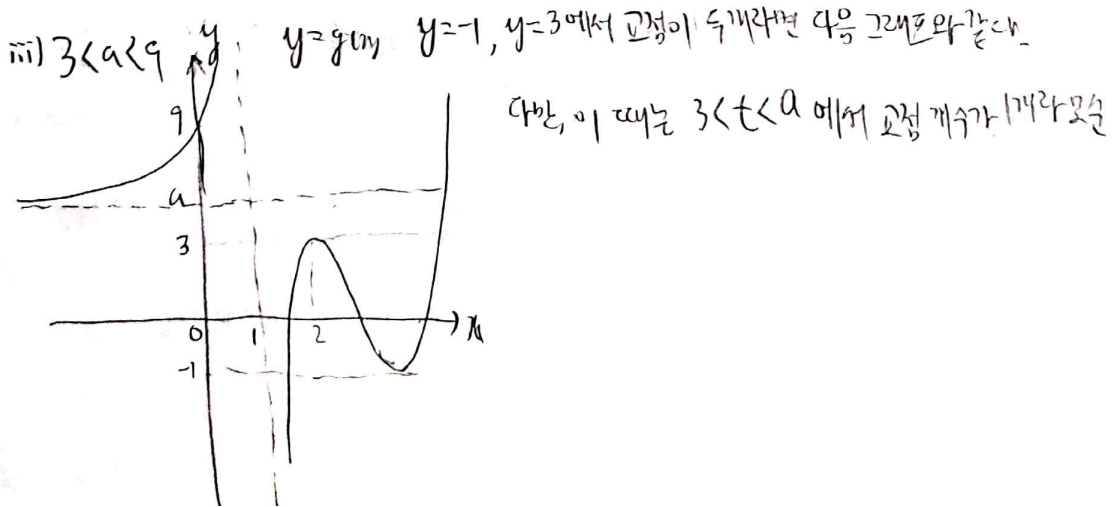 iii) 3<a<9 y=g(x) y=-1, y=3에서 교점이 두개라면 다음 그래프와 같다.
다만, 이 때는 3<t<a 에서 교점 개수가 1개라 모순
y
9
a
3
0 1 2 x
-1